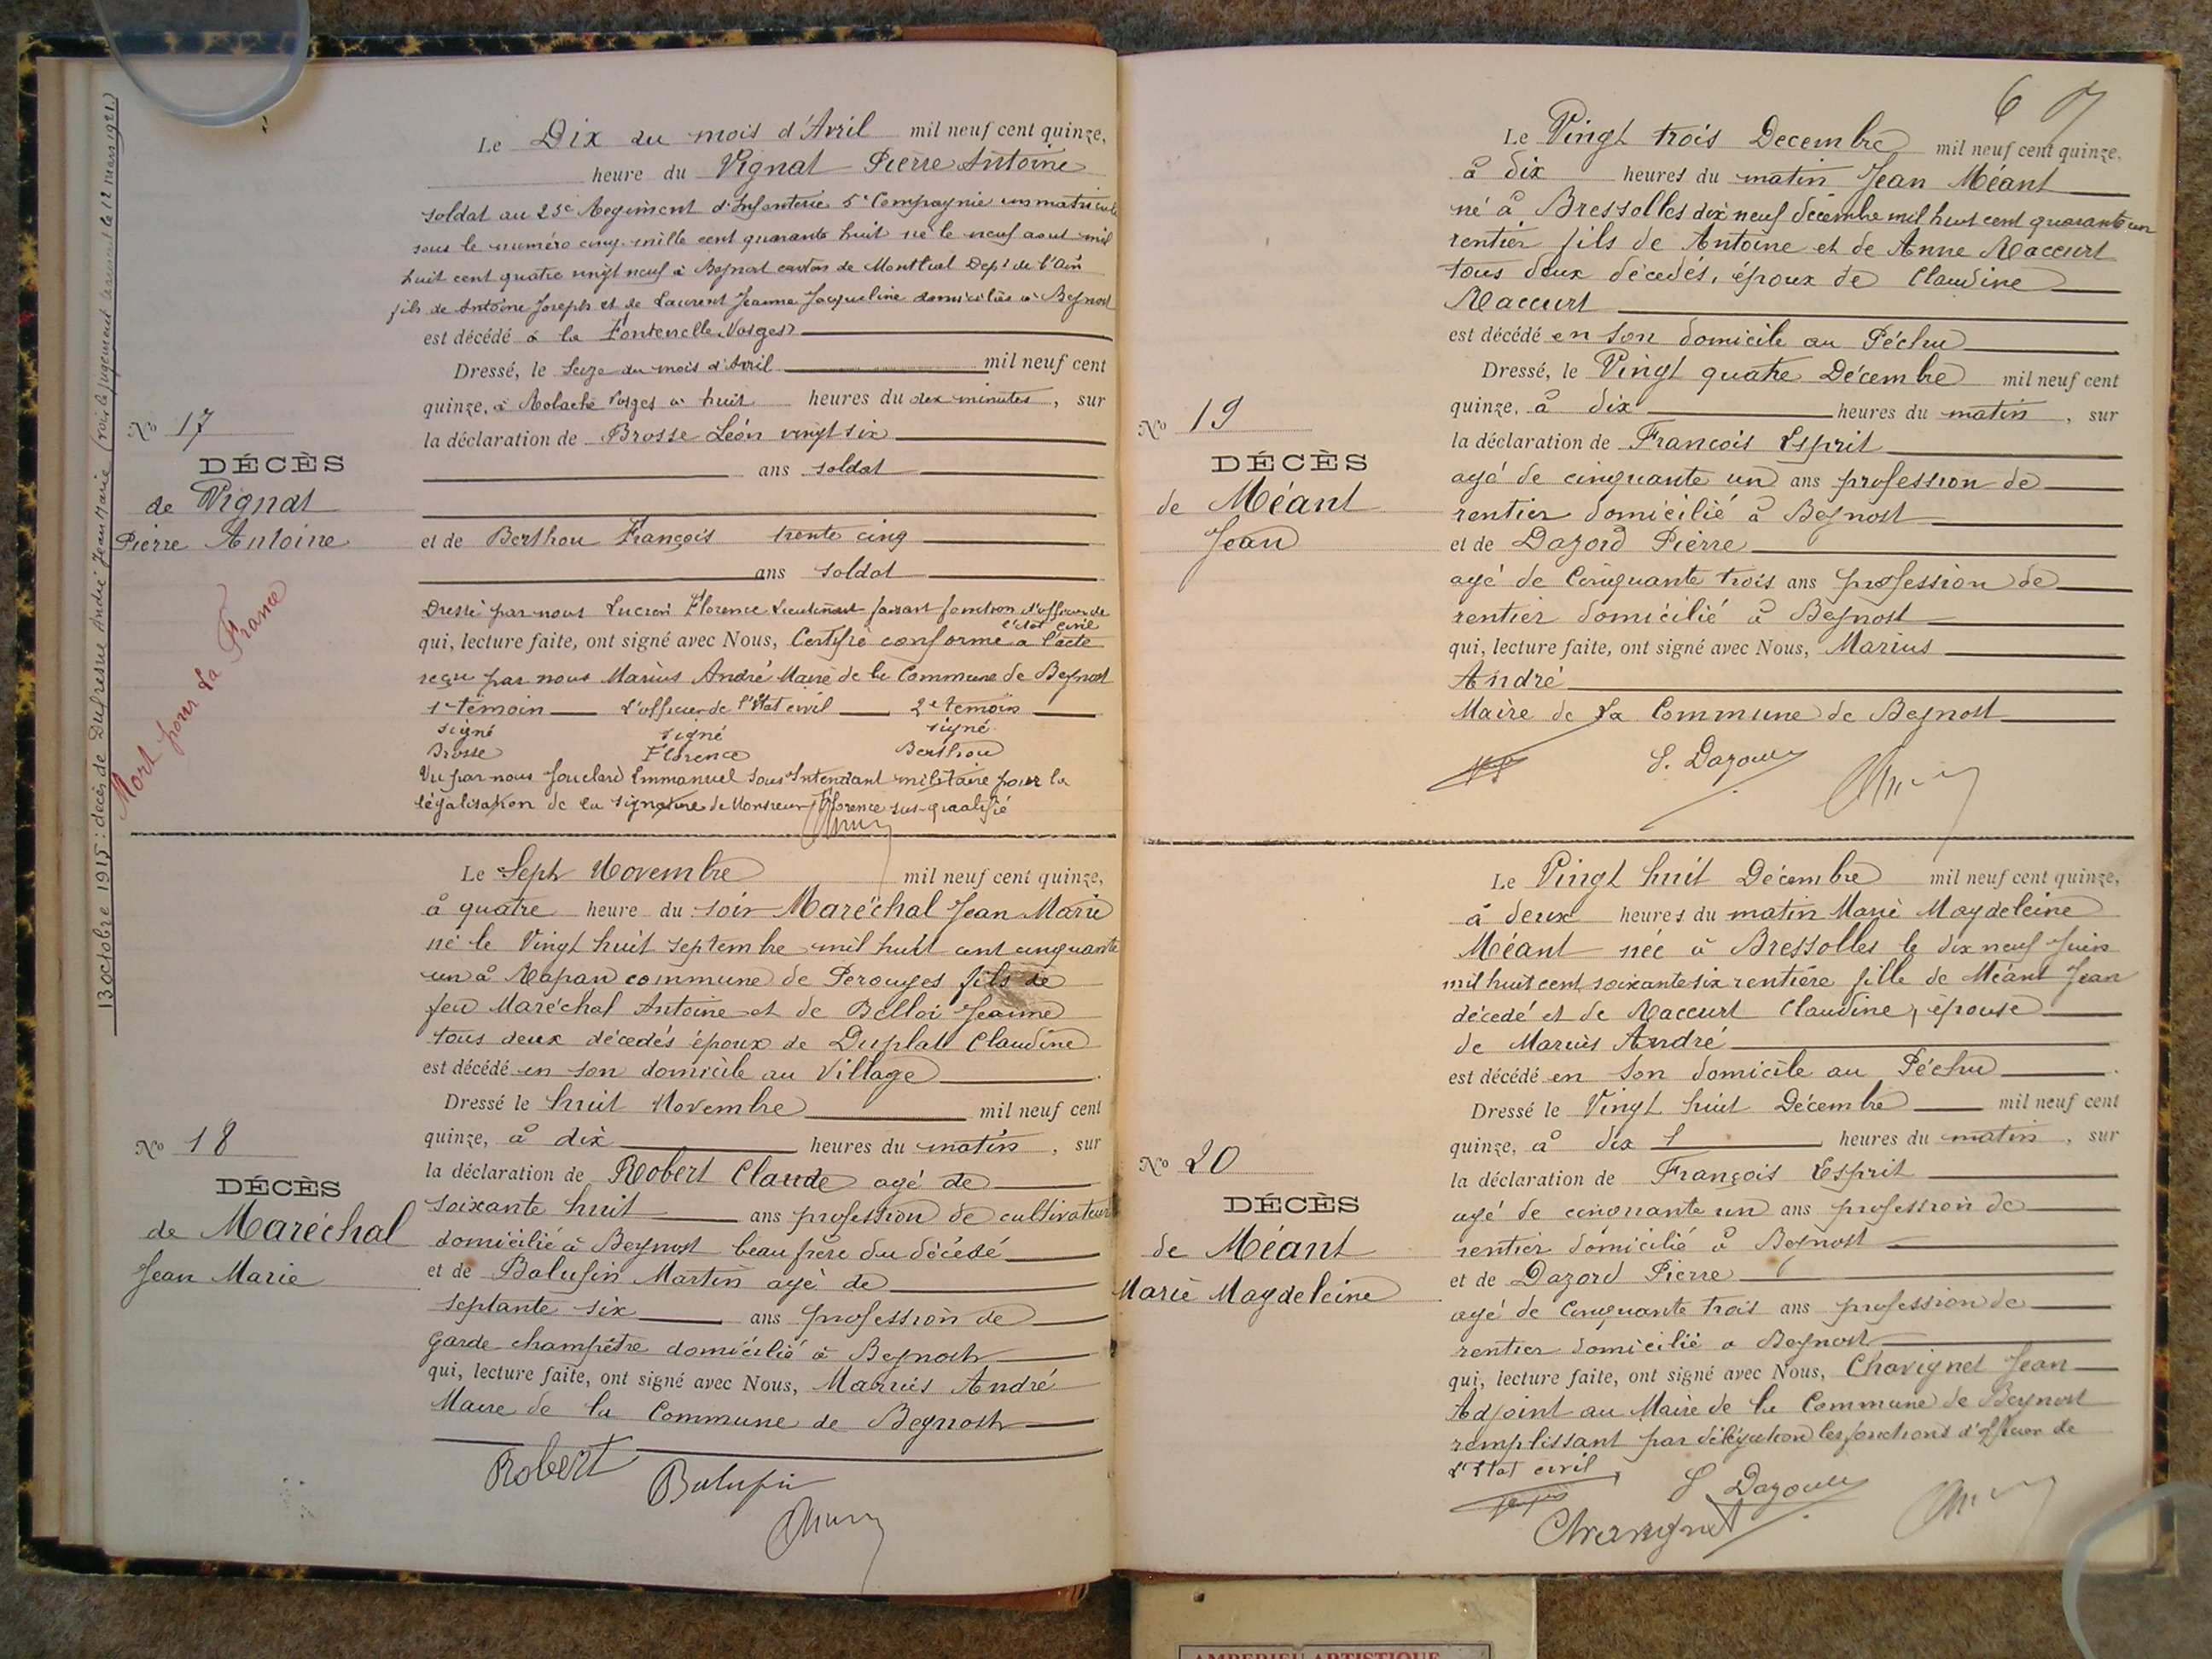 13 octobre 1915: décès de Dufresne André Jean Marie (voir le jugement le 12 mars 1921.)
Le Dix du mois d'Avril mil neuf cent quinze,
heure du Vignat Pierre Antoine
soldat au 23e Regiment d'Infanterie 5e Compagnie immatriculé
sous le numéro cinq mille cent quarante huit né le neuf aout mil
huit cent quatre vingt neuf à Beynost canton de Montluel Dept de l'Ain
fils de Antoine Joseph et de Laurent Jeanne Jacqueline domiciliés à Beynost
est décédé à la Fontenelle Vosges
Dressé, le Seize du mois d'Avril mil neuf cent
quinze, à Vosges à huit heures du dix minutes, sur
la déclaration de Brosse Léon vingt six
ans soldat
et de Berthou François trente cinq
ans soldat
Dressé par nous Lucien Florence Lieutenant faisant fonction d'officier de
l'état civil
qui, lecture faite, ont signé avec Nous, Certifié conforme a l'acte
reçu par nous Marius André Maire de la Commune de Beynost
1er témoin L'officier de l'Etat civil 2e temoin
signé signé signé
Brosse Florence Berthou
Vu par nous Emmanuel Sous Intendant militaire pour la
légalisation de la signature de Monsieur Florence sus-qualifié
No 17
DÉCÈS
de Vignat
Pierre Antoine
Mort pour la France
Le Sept Novembre mil neuf cent quinze,
à quatre heure du soir Maréchal Jean Marie
né le Vingt huit septembre mil huit cent cinquante
un à Rapan commune de Perouges fils de
feu Maréchal Antoine et de Belloi Jeanne
tous deux décedés époux de Duplat Claudine
est décédé en son domicile au Village
Dressé le huit Novembre mil neuf cent
quinze, à dix heures du matin, sur
la déclaration de Robert Claude agé de
soixante huit ans profession de cultivateur
domicilié à Beynost beau frère du décédé
et de Balufin Martin agé de
septante six ans profession de
garde champêtre domicilié à Beynost
qui, lecture faite, ont signé avec Nous, Marius André
Maire de la Commune de Beynost
Robert Balufin
No 18
DÉCÈS
de Maréchal
Jean Marie
6 7
Le Vingt trois Decembre mil neuf cent quinze,
à dix heures du matin Jean Méant
né à Bressolles dix neuf décembre mil huit cent quarante un
rentier fils de Antoine et de Anne Raccurt
tous deux décedés, époux de Claudine
Raccurt
est décédé en son domicile au Péchu
Dressé, le Vingt quatre Décembre mil neuf cent
quinze, à dix heures du matin, sur
la déclaration de Francois Esprit
agé de cinquante un ans profession de
rentier domicilié à Beynost
et de Dazord Pierre
agé de Cinquante trois ans profession de
rentier domicilié à Beynost
qui, lecture faite, ont signé avec Nous, Marius
André
Maire de la Commune de Beynost
No 19
DÉCÈS
de Méant
Jean
Le Vingt huit Décembre mil neuf cent quinze,
à deux heures du matin Marie Magdeleine
Méant née à Bressolles le dix neuf Juin
mil huit cent soixante six rentière fille de Méant Jean
décedé et de Raccurt Claudine, épouse
de Marius André
est décédé en son domicile au Péchu
Dressé le Vingt huit Décembre mil neuf cent
quinze, à dix heures du matin, sur
la déclaration de François Esprit
agé de cinquante un ans profession de
rentier domicilié à Beynost
et de Dazord Pierre
agé de Cinquante trois ans profession de
rentier domicilié a Beynost
qui, lecture faite, ont signé avec Nous, Chavignet Jean
Adjoint au Maire de la Commune de Beynost
remplissant par délégation les fonctions d'officier de
l'Etat civil
Chavignet
No 20
DÉCÈS
de Méant
Marie Magdeleine
AMBERIEU ARTISTIQUE